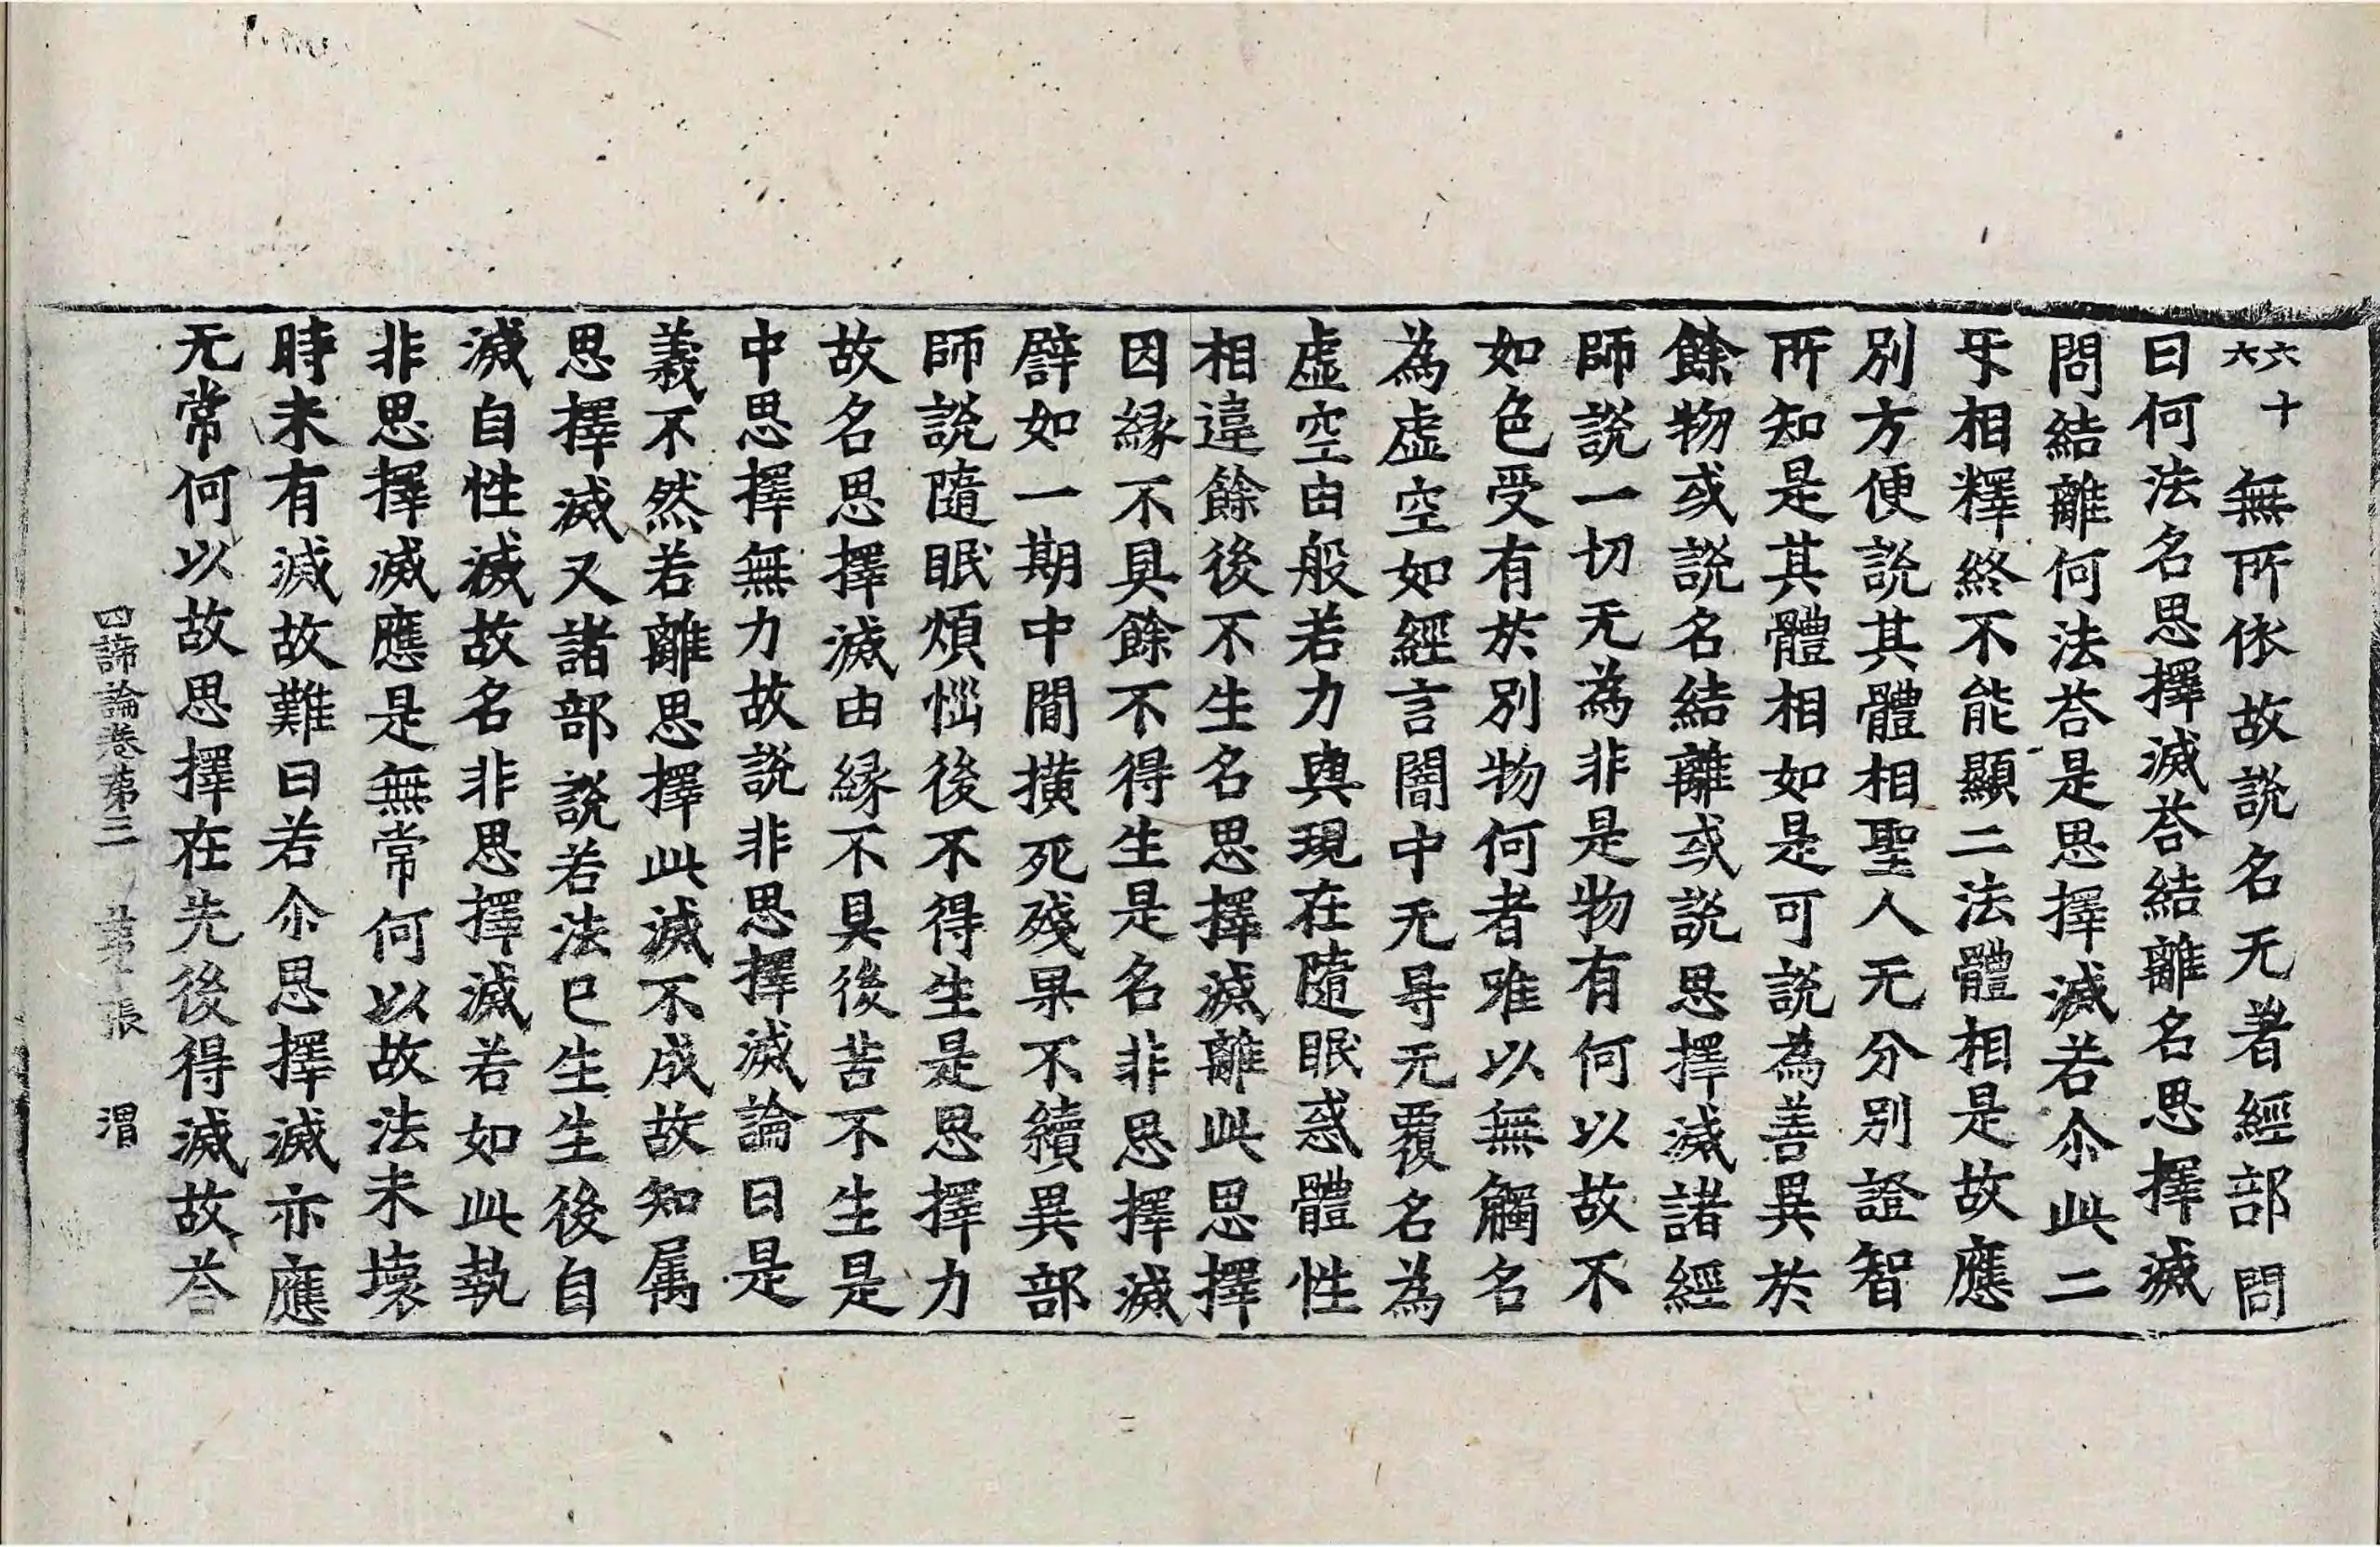 六十六 無所依故說名无著經部問
曰何法名思擇滅荅結離名思擇滅
問結離何法荅是思擇滅若尒此二
𤓰相釋終不能顯二法體相是故應
別方便說其體相聖人无分別證智
所知是其體相如是可說為善異於
餘物或說名結離或說思擇滅諸經
師說一切无為非是物有何以故不
如色受有於別物何者唯以無觸名
為虛空如經言闇中无㝵无覆名為
虛空由般若力與現在隨眠惑體性
相違餘後不生名思擇滅離此思擇
因緣不具餘不得生是名非思擇滅
譬如一期中閒橫死殘果不續異部
師說隨眠煩惱後不得生是思擇力
故名思擇滅由緣不具後苦不生是
中思擇無力故說非思擇滅論曰是
義不然若離思擇此滅不成故知属
思擇滅又諸部說若法已生生後自
滅自性滅故名非思擇滅若如此執
非思擇滅應是無常何以故法未壞
時未有滅故難曰若尒思擇滅亦應
无常何以故思擇在先後得滅故荅
四諦論卷第三 第 張 渭